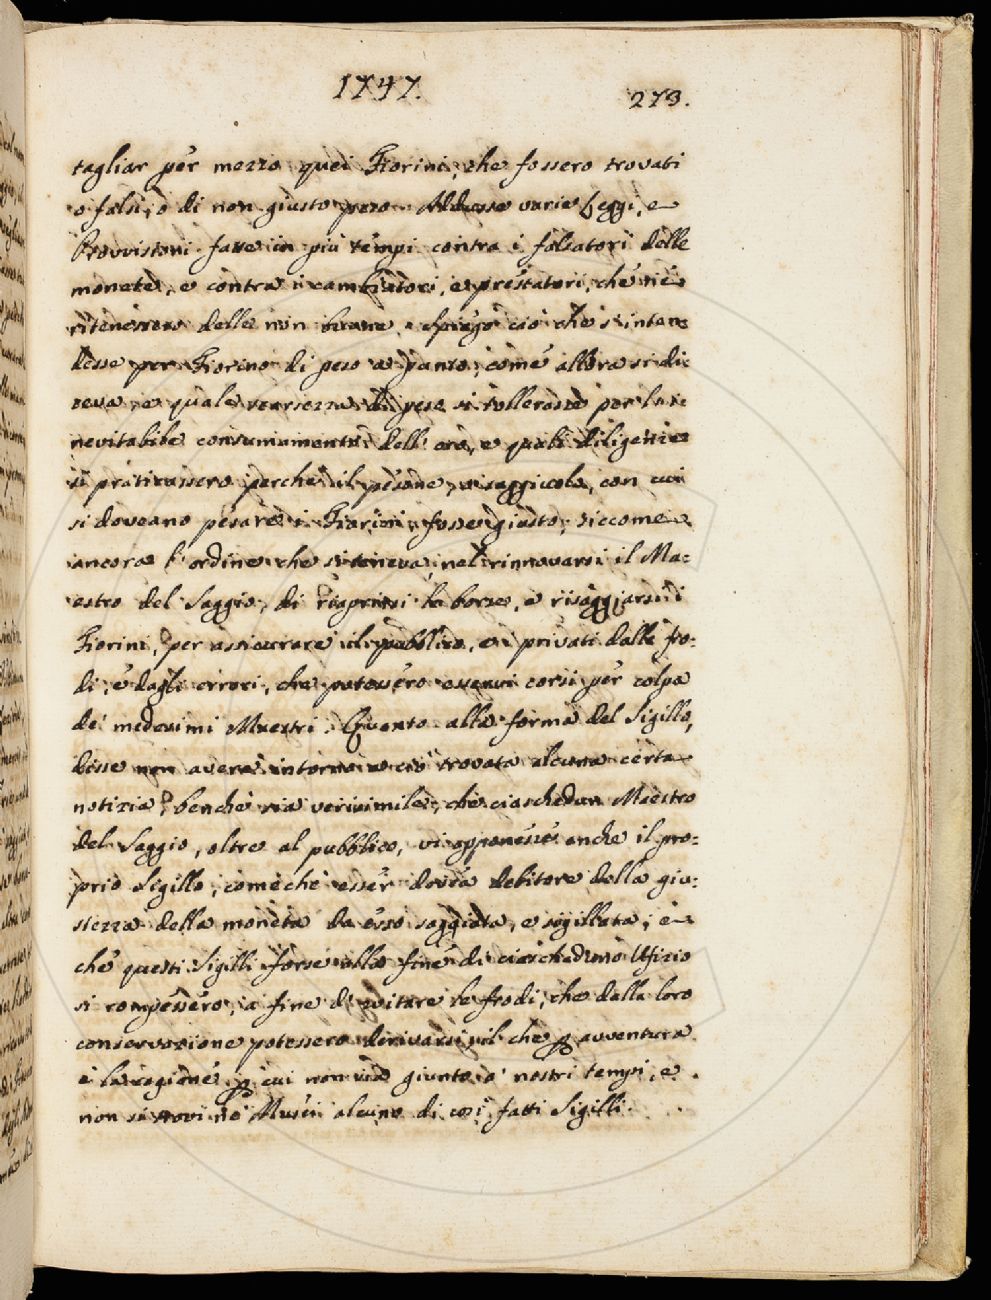 1747.
273.
tagliar per mezzo quei Fiorini, che fossero trovati
o falsi, o di non giusto peso. Addusse varie Leggi, e
Provvisioni fatte in più tempi contra i falsatori delle
monete, e contra i cambiatori, e prestatori, che ne
ritenessero delle non buone, e spiegò ciò che s'inten=
desse per Fiorino di peso e conio, come allora si di=
ceva, e quale scarsezza di peso si tollerasse per l'i=
nevitabile consumamento dell' oro, e quali diligenze
si praticassero perchè il pesone, o saggiuolo, con cui
si doveano pesare i Fiorini fosse giusto; siccome
ancora l'ordine che si teneva nel rinnovarsi il Ma=
estro del Saggio, di riaprirsi le borse, e risaggiarsi i
Fiorini, per assicurare il pubblico, e i privati dalle fro=
di, e dagli errori, che potessero esservi corsi per colpa
de' medesimi Maestri. Quanto alla forma del Sigillo,
disse non avere intorno a ciò trovata alcuna certa
notizia, benchè sia verisimile, che ciaschedun Maestro
del Saggio, oltre al pubblico, vi apponesse anche il pro=
prio Sigillo, comechè esser dovea debitore della giu=
stezza della moneta da esso saggiata, e sigillata; e
che questi Sigilli forse alla fine di ciaschedun Ufizio
si rompessero, a fine di evitare le frodi, che dalla loro
conservazione potessero derivarsi, il che p avventura
è la ragione, p cui non sia giunto a' nostri tempi, e
non si trovi ne' Musei alcuno di così fatti Sigilli.